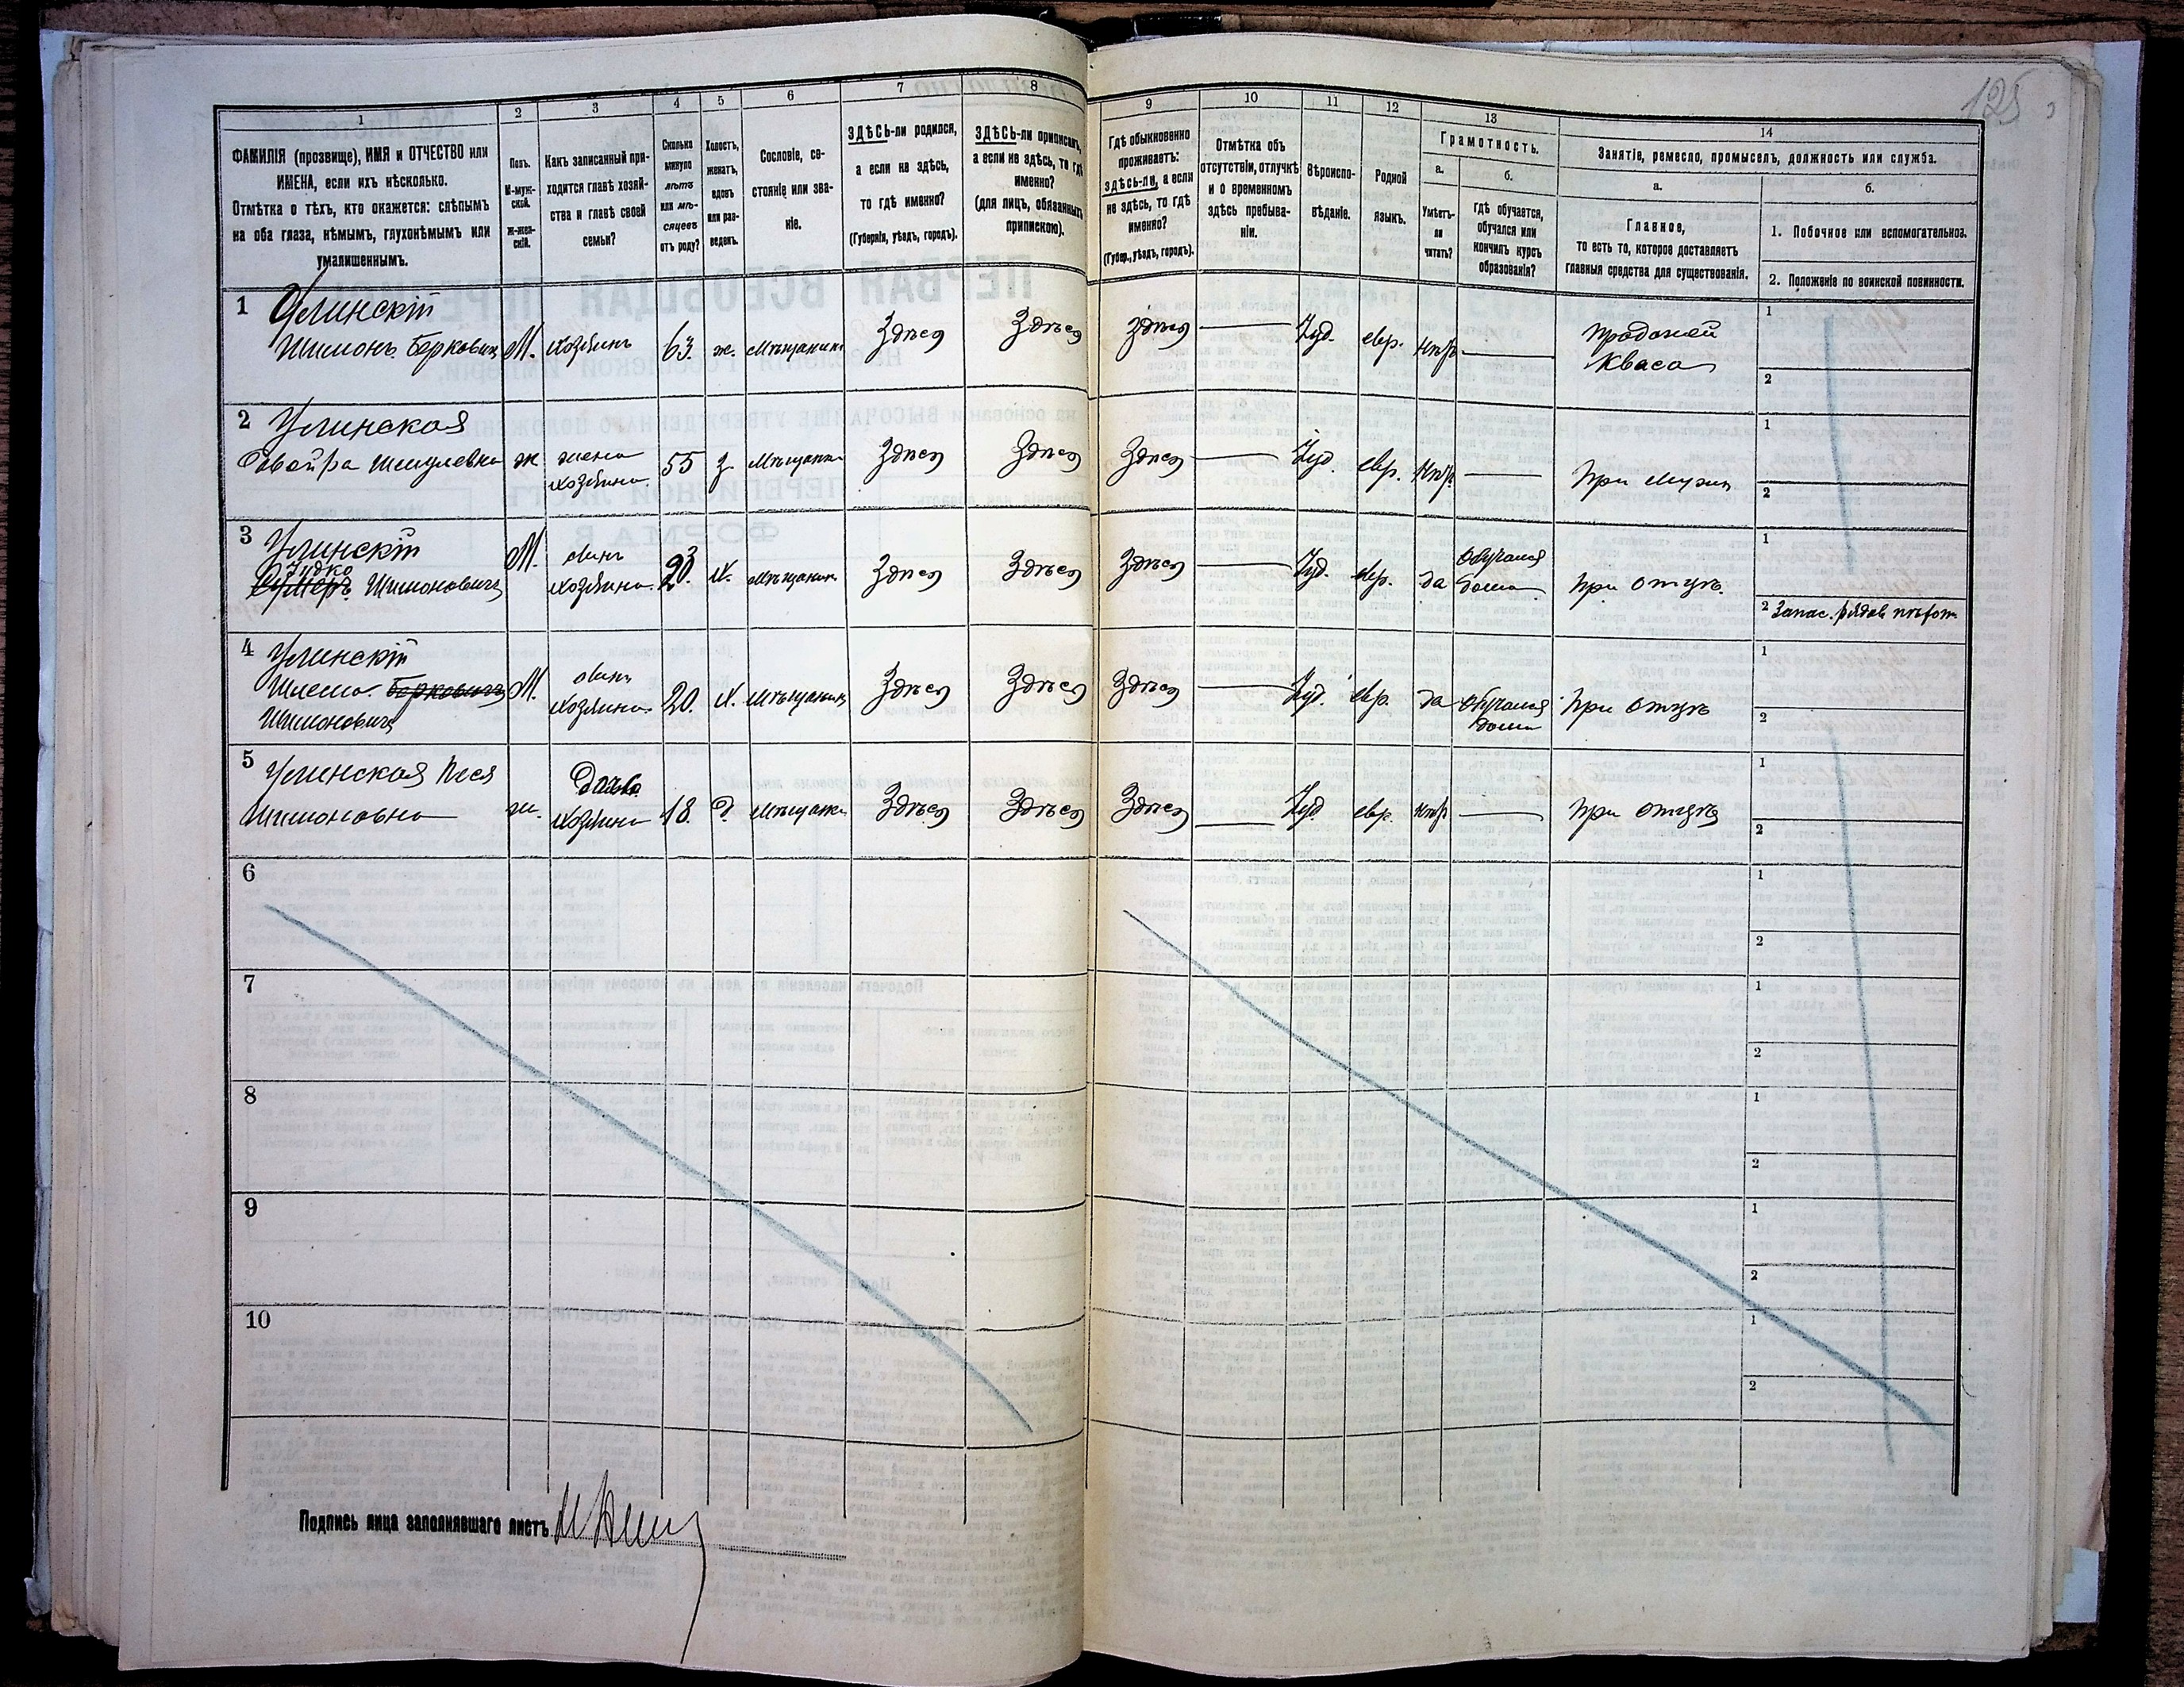 125
1
2
3
4
5
6
7
8
9
10
11
12
13
14
ФАМИЛІЯ (прозвище), ИМЯ и ОТЧЕСТВО или
ИМЕНА, если ихъ нѣсколько.
Отмѣтка о тѣхъ, кто окажется: слѣпымъ
на оба глаза, нѣмымъ, глухонѣмымъ или
умалишеннымъ.
Полъ.
М-муж-
ской.
Ж-жен-
скій.
Какъ записанный при-
ходится главѣ хозяй-
ства и главѣ своей
семьи?
Сколько
минуло
лѣтъ
или мѣ-
сяцевъ
отъ роду?
Холостъ,
женатъ,
вдовъ
или раз-
веденъ.
Сословіе, со-
стояніе или зва-
ніе.
ЗДѢСЬ-ли родился,
а если не здѣсь,
то гдѣ именно?
(Губернія, уѣздъ, городъ).
ЗДѢСЬ-ли приписанъ,
а если не здѣсь, то гдѣ
именно?
(для лицъ, обязанныхъ
припискою).
Гдѣ обыкновенно
проживаетъ:
здѣсь-ли, а если
не здѣсь, то гдѣ
именно?
(Губер., уѣздъ, городъ).
Отмѣтка объ
отсутствіи, отлучкѣ
и о временномъ
здѣсь пребыва-
ніи.
Вѣроиспо-
вѣданіе.
Родной
языкъ.
Грамотность.
а.
Умѣетъ-
ли
читать?
б.
Гдѣ обучается,
обучался или
кончилъ курсъ
образованія?
Занятіе, ремесло, промыселъ, должность или служба.
а.
Главное,
то есть то, которое доставляетъ
главныя средства для существованія.
б.
1. Побочное или вспомогательное.
2. Положеніе по воинской повинности.
1
Шимонъ Берковичъ М. хозяинъ 63. ж. мѣщанинъ Здѣсь Здѣсь Здѣсь Іуд. евр. нѣтъ продажей
кваса
1
2
2
Шмулевна ж жена
хозяина 55 з. мѣщанка Здѣсь Здѣсь Здѣсь Іуд. евр. нѣтъ При мужѣ
1
2
3
Іудко
Шимоновичъ М. сынъ
хозяина х. мѣщанинъ Здѣсь Здѣсь Здѣсь Іуд. евр. да обучался
дома при отцѣ.
1
2 Запас. рядов
4
Шимоновичъ М. сынъ
хозяина 20. х. мѣщанинъ Здѣсь Здѣсь Здѣсь Іуд. евр. да обучался
дома При отцѣ
Берковичъ
1
2
5
Песя
Шимоновна ж. Дочь
хозяина 18. д. мѣщанка Здѣсь Здѣсь Здѣсь Іуд. евр. нѣтъ при отцѣ
1
2
6
1
2
7
1
2
8
1
2
9
1
2
10
1
2
Подпись лица заполнявшаго листъ